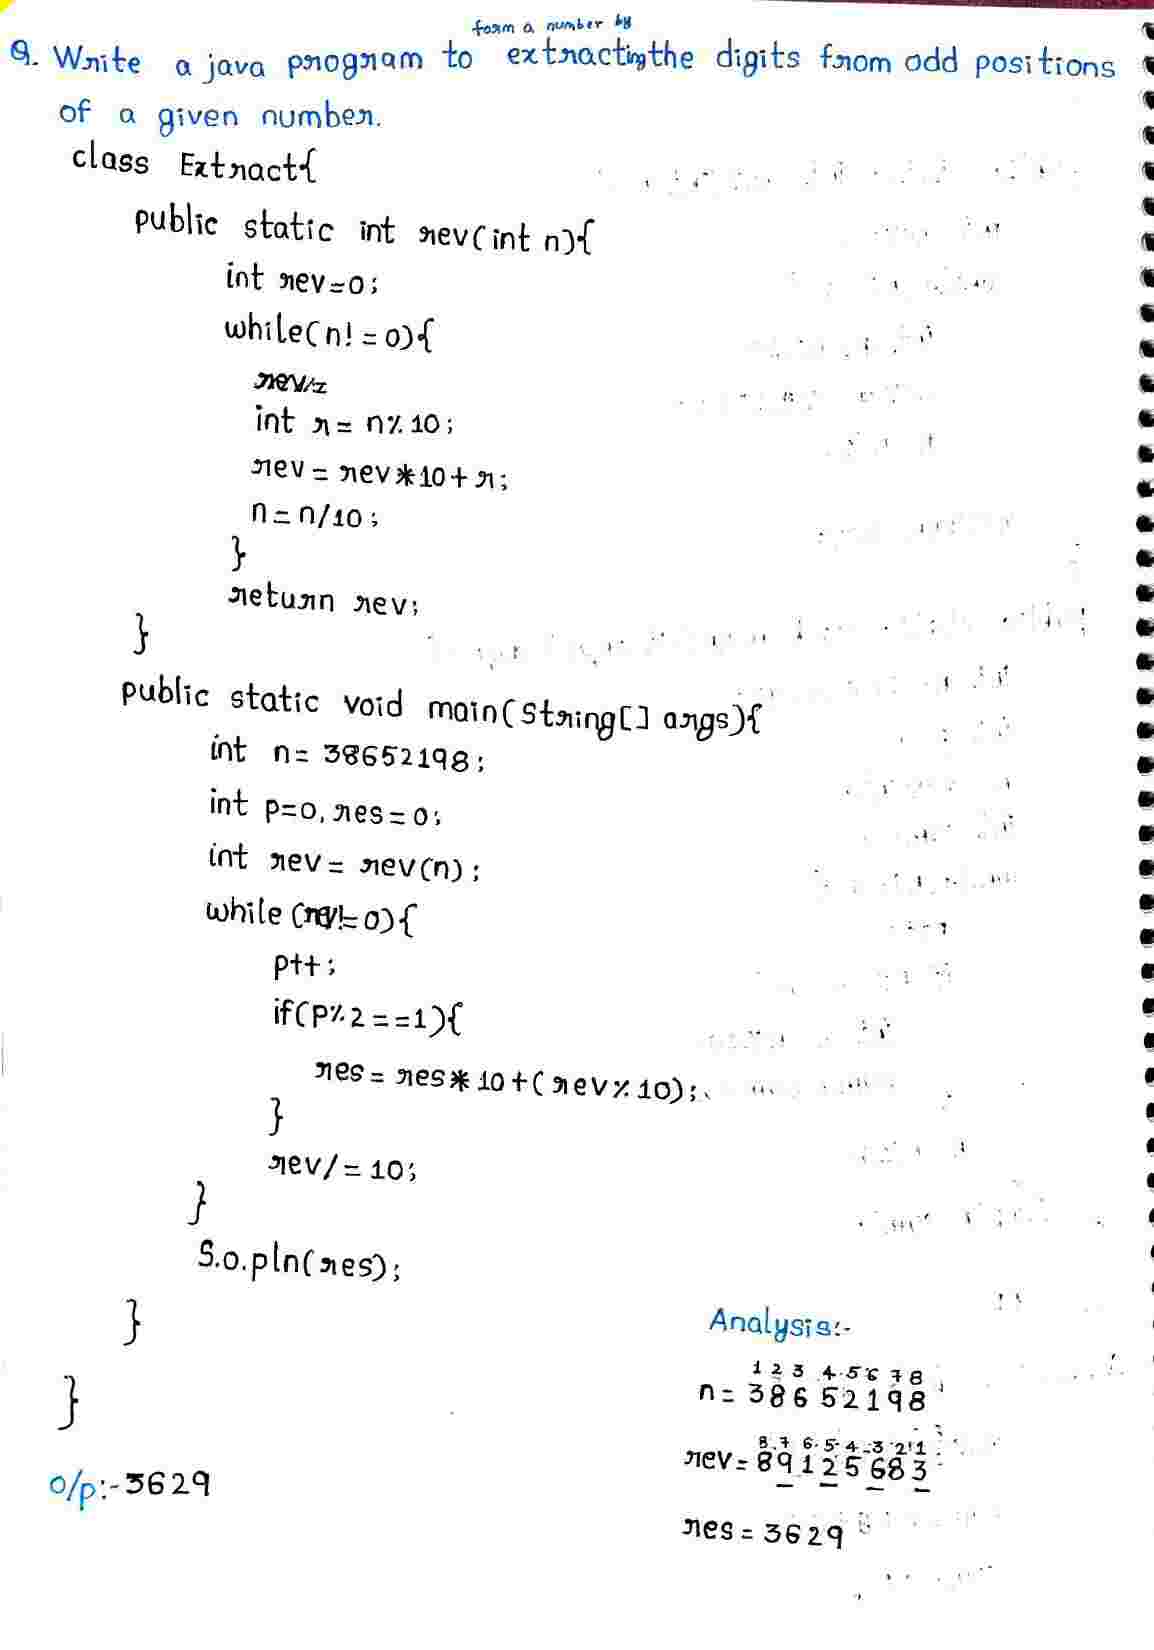 form a number by
Q. Write a java program to extracting the digits from odd positions
of a given number.
class Extract{
public static int rev(int n){
int rev=0;
while(n!=0){
int r= n%10;
rev=rev*10+r;
n=n/10;
}
return rev;
}
public static void main(String[] args){
int n= 38652198;
int p=0, res=0;
int rev= rev(n);
while(rev!=0){
p++;
if(p%2==1){
res=res*10+(rev%10);
}
rev/=10;
}
S.o.pln(res);
}
}
o/p:-3629
Analysis:-
1 2 3 4 5 6 7 8
n= 38652198
8 7 6 5 4 3 2 1
rev=89125683
res=3629